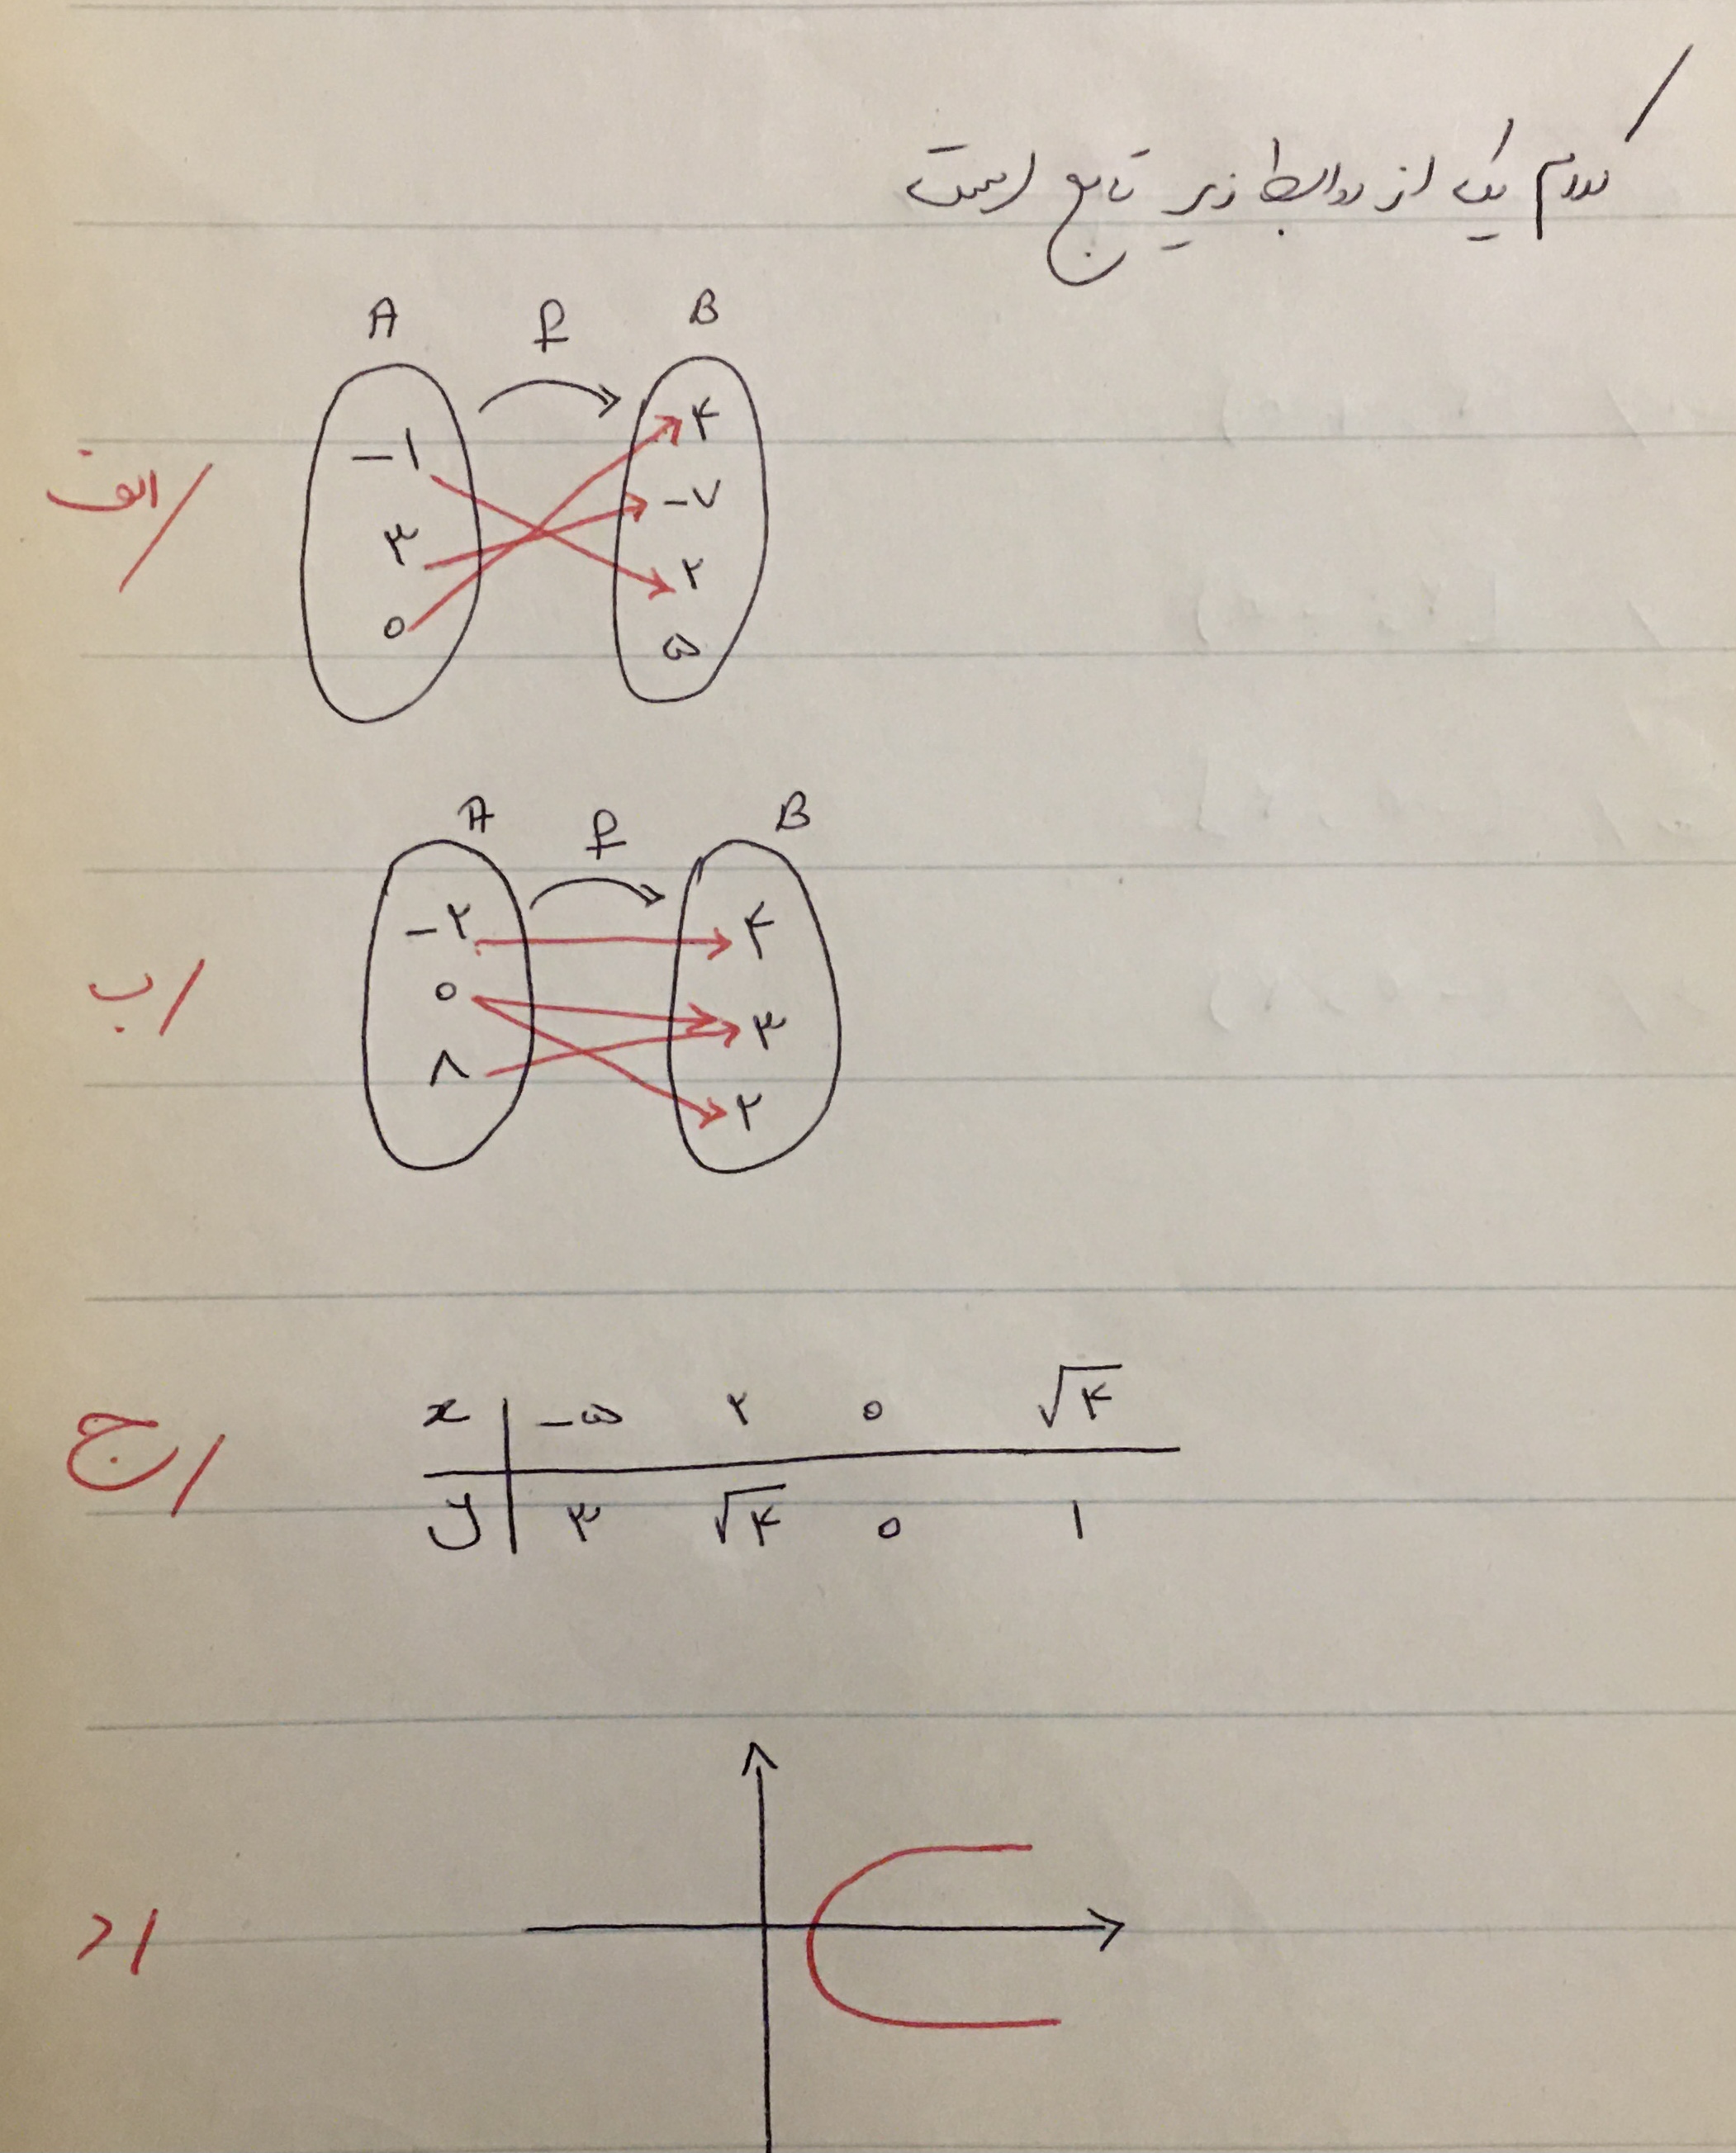 کدام یک از روابط زیر تابع است
الف/
A f B
-۱ ۴
۳ -۷
۰ ۲
۵
ب/
A f B
-۲ ۴
۰ ۳
۸ ۲
ج/
x -۵ ۲ ۰ √۴
y ۳ √۴ ۰ ۱
د/